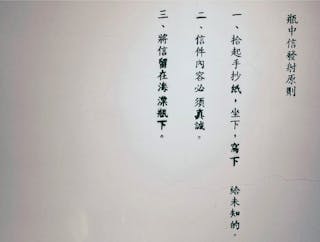 瓶中信發射原則
一、拾起手抄紙，坐下，寫下 給未知的。
二、信件內容必須真誠。
三、將信留在海漂瓶下。